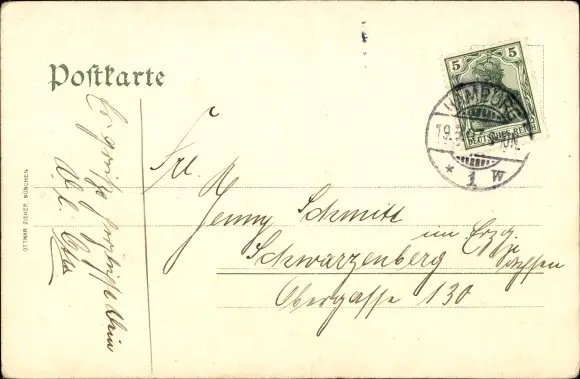 Postkarte
5 5
DEUTSCHES REICH
HAMBURG
19.
* 1 W
Frl.
Jenny Schmitt
Schwarzenberg im Erzg
Sachsen
Obergasse 130
Es grüßt herzlichst
OTTMAR ZIEHER, MÜNCHEN